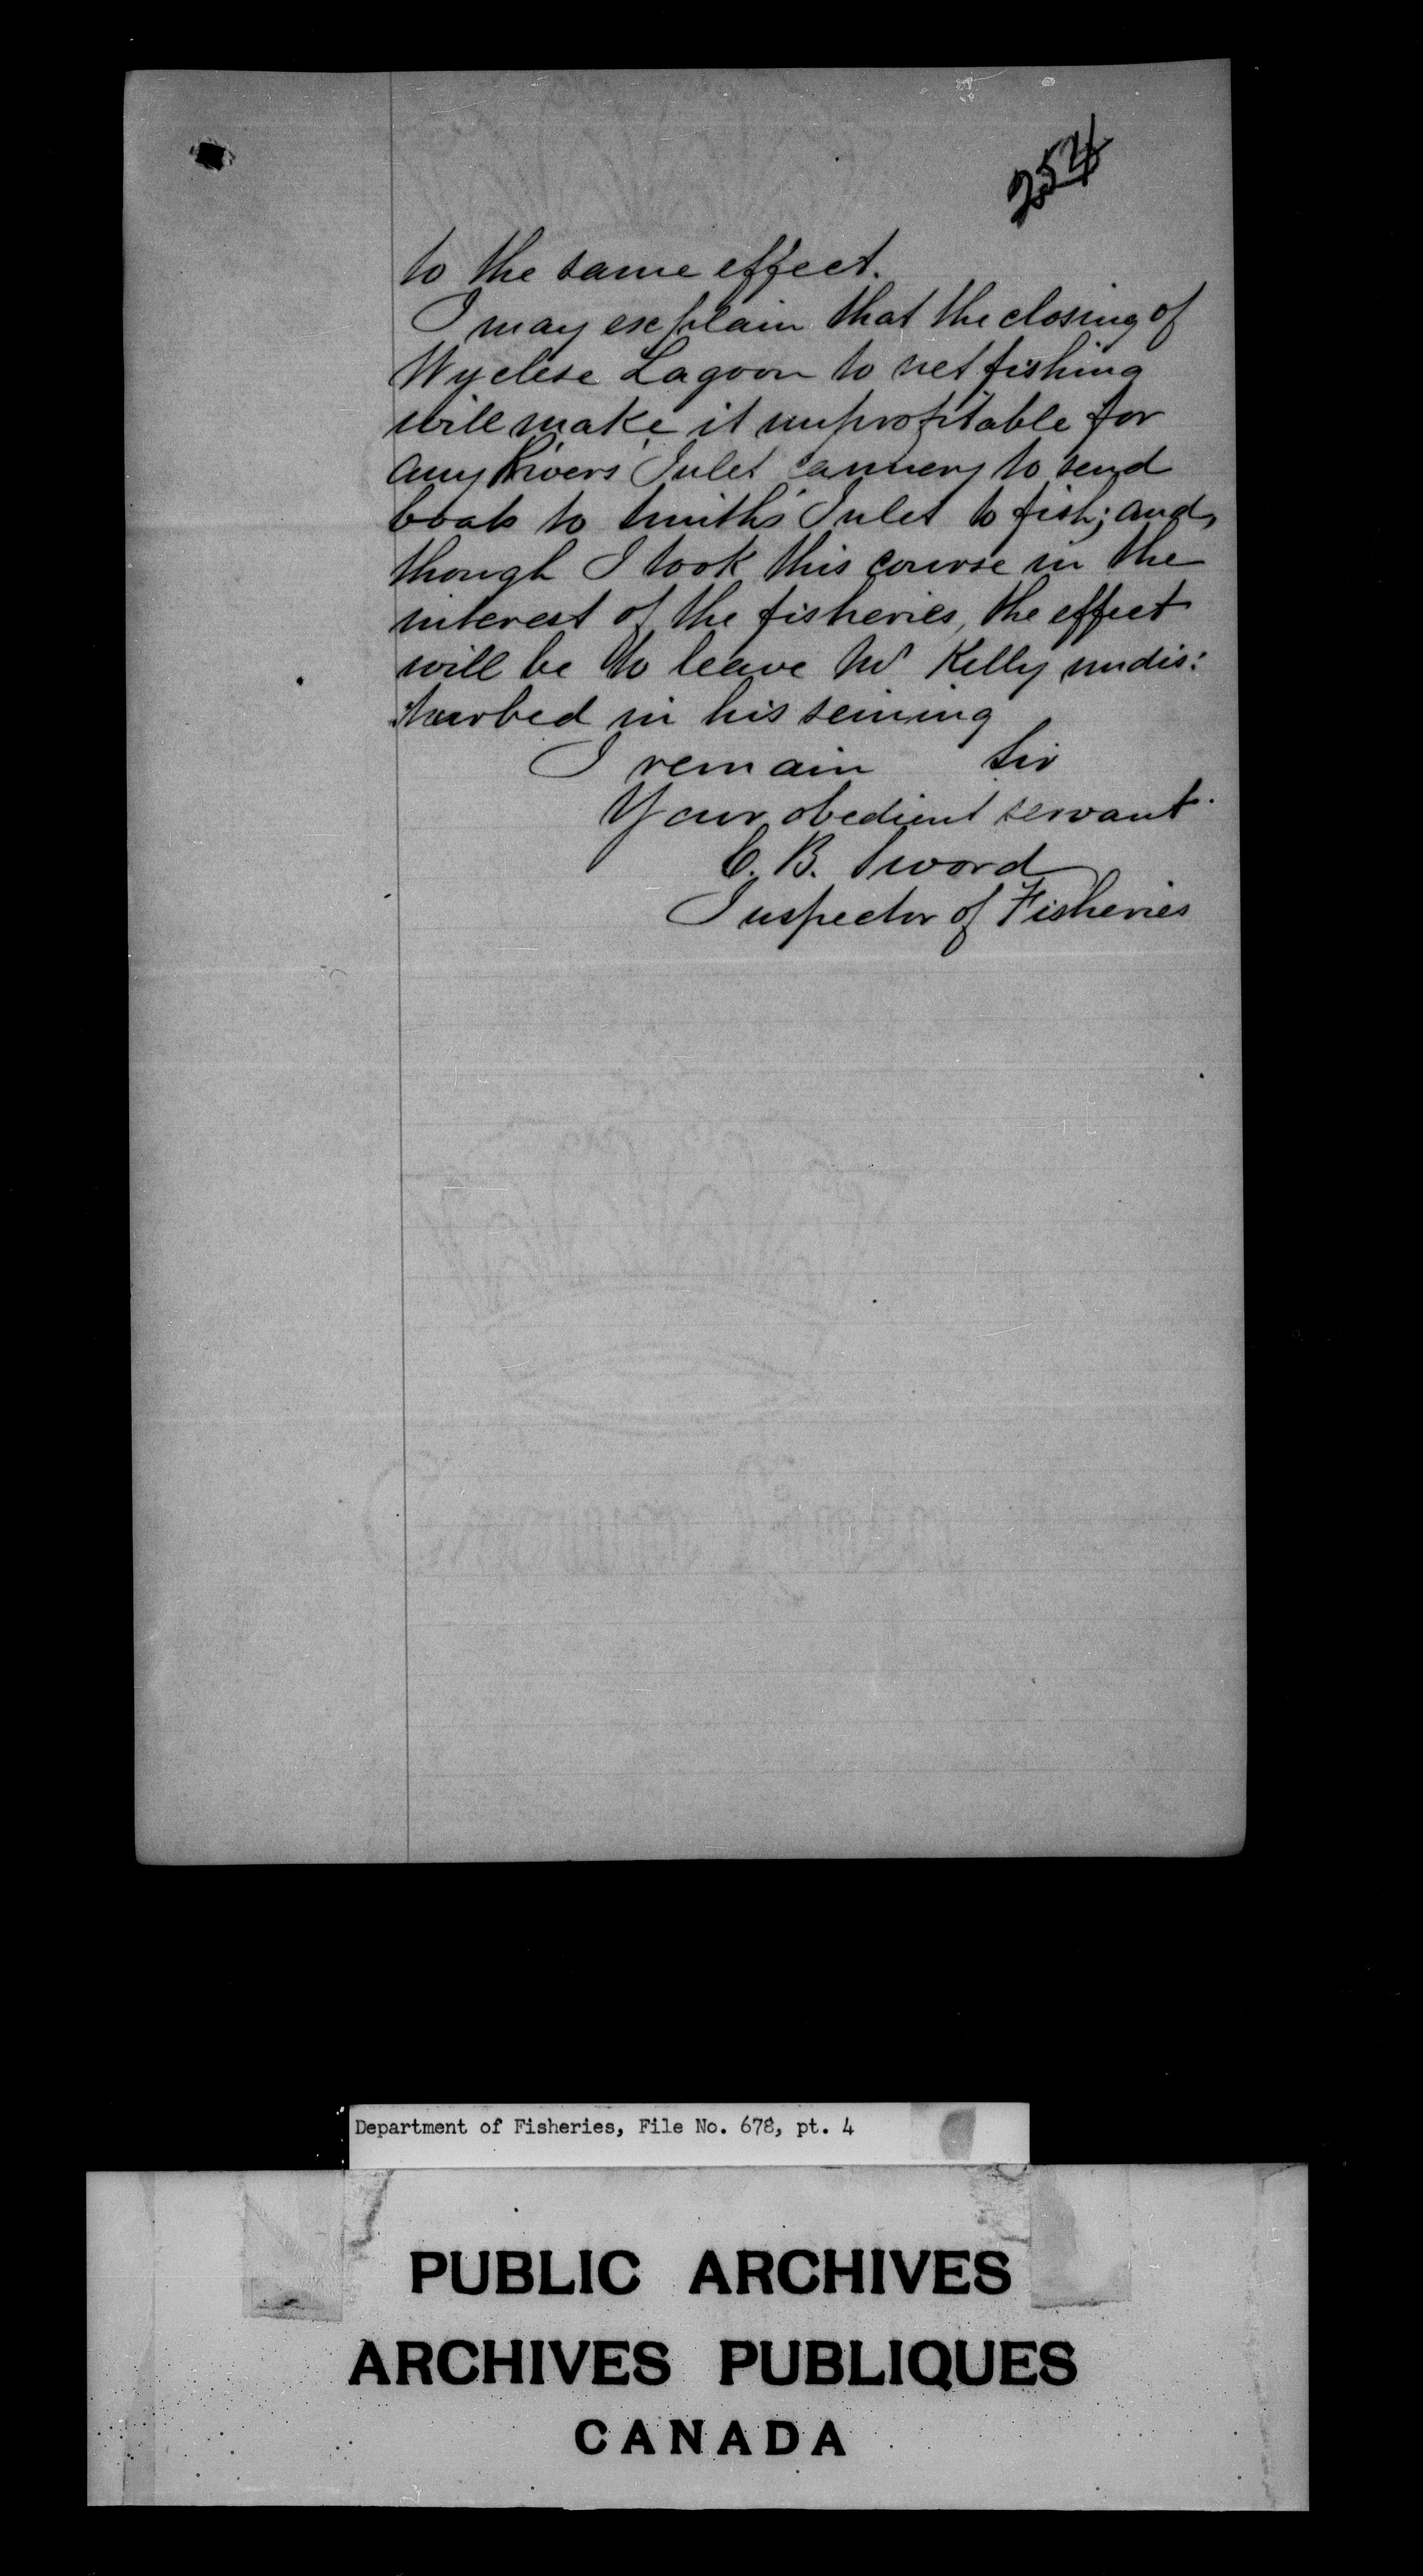 254
to the same effect.
I may explain that the closing of
Wyclese Lagoon to net fishing
will make it unprofitable for
any Rivers Inlet cannery to send
boats to Smith's Inlet to fish; and,
though I took this course in the
interest of the fisheries, the effect
will be to leave Mr Kelly undis:
:turbed in his seining
I remain Sir
Your obedient servant.
C. B. Sword
Inspector of Fisheries
Department of Fisheries, File No. 678, pt. 4
PUBLIC ARCHIVES
ARCHIVES PUBLIQUES
CANADA